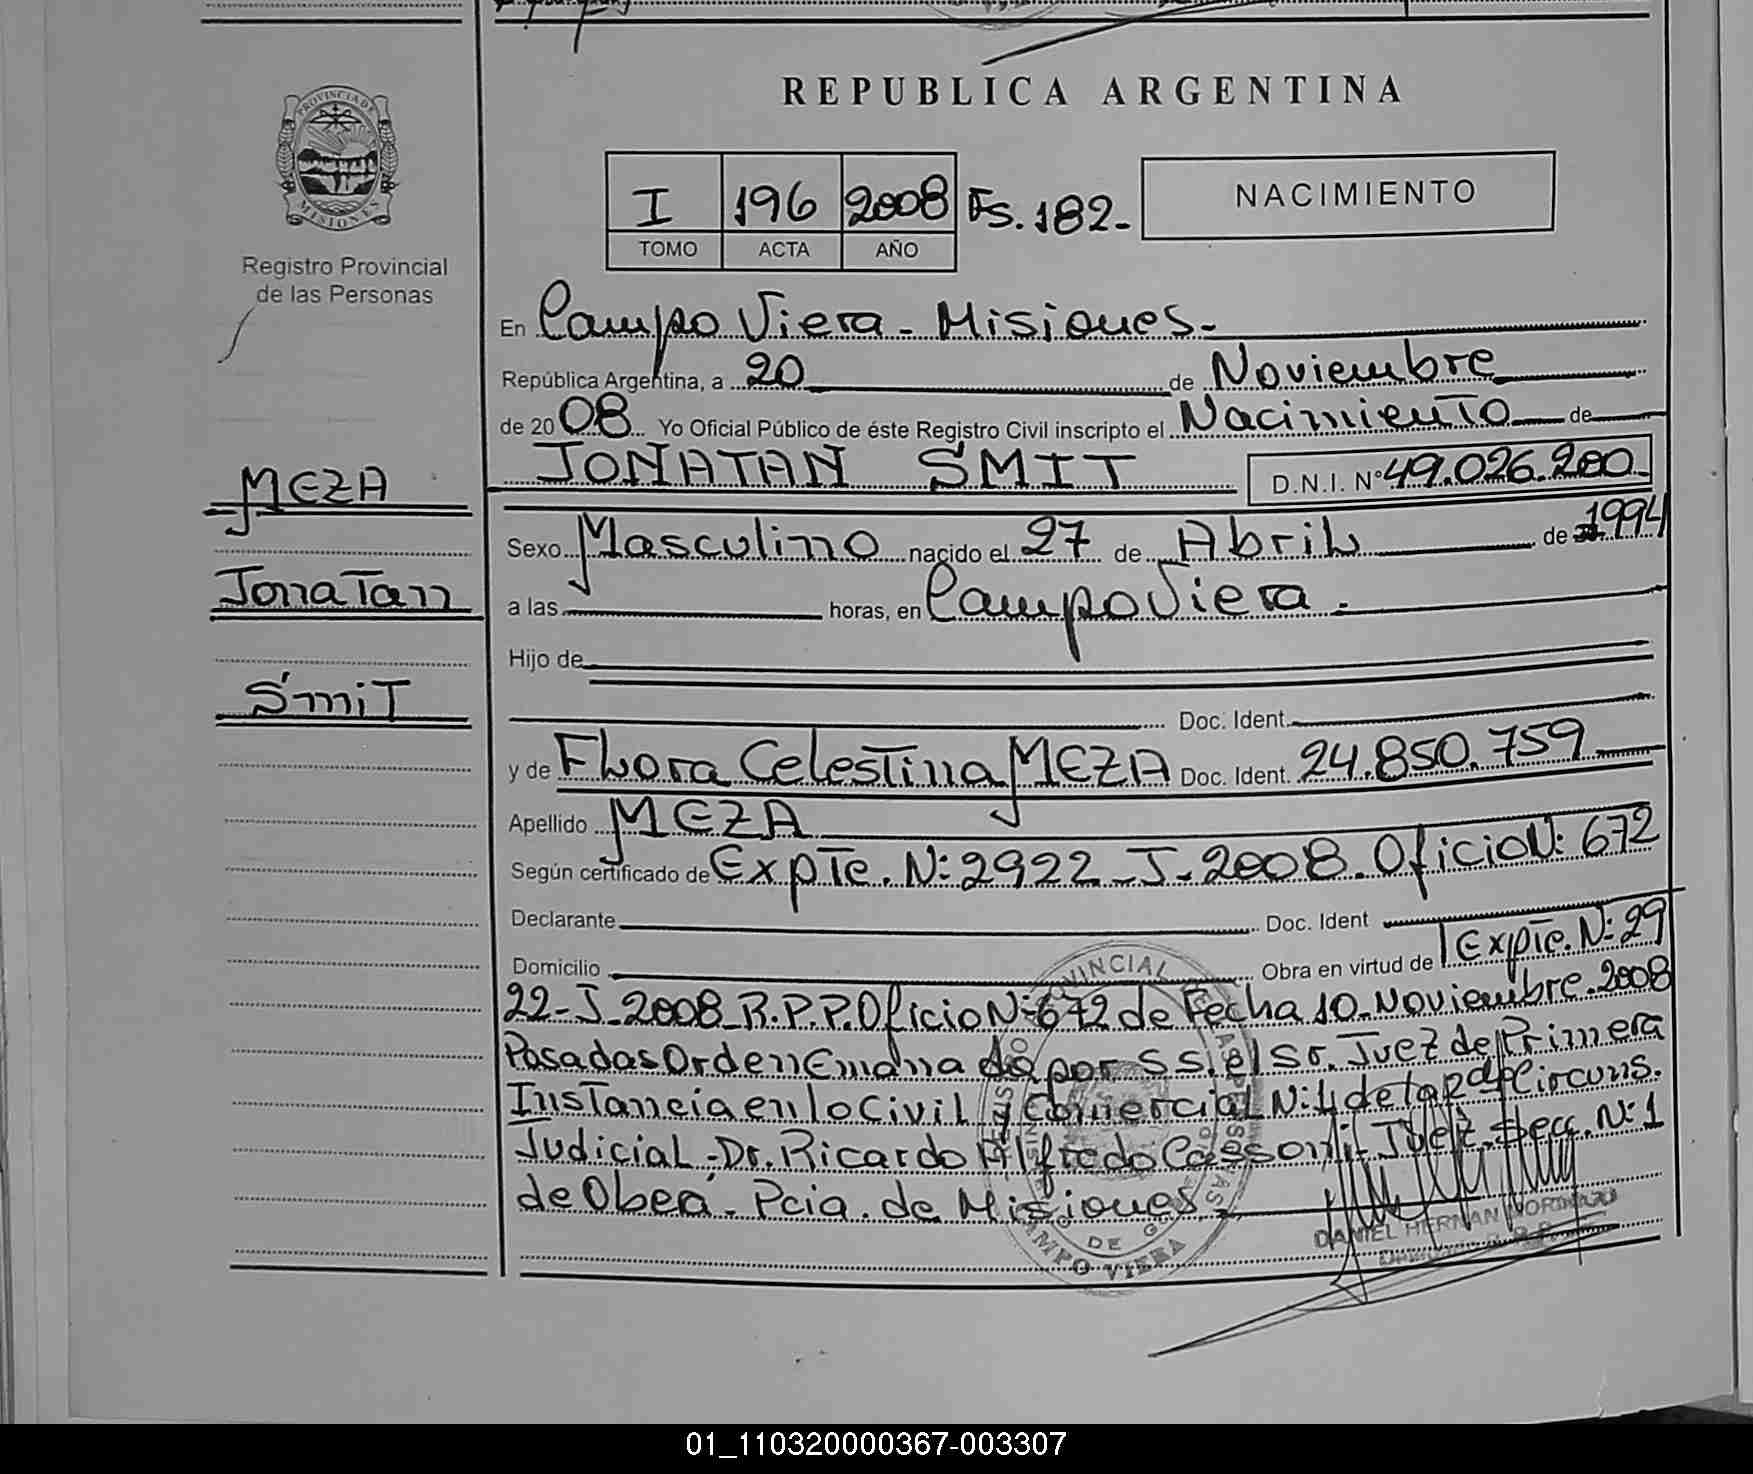 REPUBLICA ARGENTINA
PROVINCIA DE
MISIONES
Registro Provincial
de las Personas
I 196 2008 Fs. 182.-
TOMO ACTA AÑO
NACIMIENTO
En Campo Viera - Misiones.-
República Argentina, a 20 de Noviembre
de 2008 Yo Oficial Público de éste Registro Civil inscripto el Nacimiento de
JONATAN SMIT D.N.I. Nº 49.026.200.
MEZA
Sexo Masculino nacido el 27 de Abril de 1994
Jonatan
a las horas, en Campo Viera.-
Hijo de
Smit
Doc. Ident.
y de Flora Celestina MEZA Doc. Ident. 24.850.759
Apellido MEZA
Según certificado de Expte. N: 2922-J-2008. Oficio N: 672
Declarante Doc. Ident
Domicilio Obra en virtud de Expte. N: 29
22-J-2008-R.P.P. Oficio N: 672 de Fecha 10-Noviembre-2008
Posadas Orden Emanada por S.S. el Sr. Juez de Primera
Instancia en lo Civil y Comercial N: 4 de la 2da Circuns.
Judicial - Dr. Ricardo Alfredo Cassoni Juez. Secc. N: 1
de Oberá - Pcia. de Misiones.-
CAMPO VIERA
DANIEL HERNAN
01_110320000367-003307